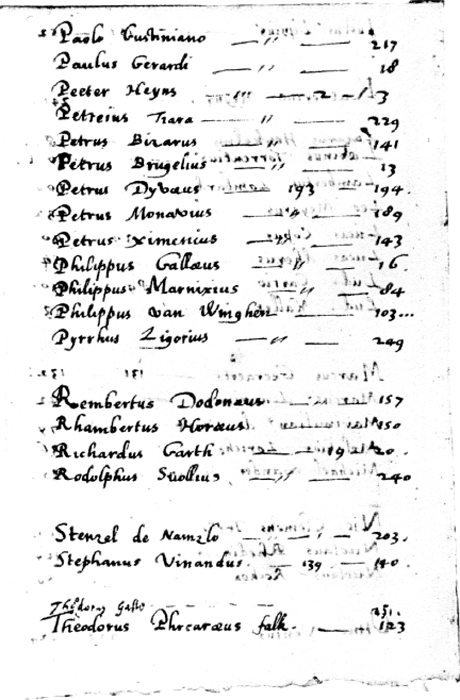 Paolo Gustiniano — " — 217
Paulus Gerardi — " — 18
Peeter Heyns — " — 2 — 13
Petreius Tiara — " — 229
Petrus Bizarus — " — 141
Petrus Brugelius — " — 13
Petrus Dyvæus — 193 — 194.
Petrus Monavius — " — 189
Petrus Ximenius — — 143
Philippus Gallæus — " — 16.
Philippus Marnixius — " — 84
Philippus van Winghen — 103...
Pyrrhus Ligorius — " — 249
Rembertus Dodonæus — 157
Rhambertus Horæus 150
Richardus Garth — 19 20.
Rodolphus — " — 240
Stenzel de Namzlo — " — 203.
Stephanus Vinandus — 139 — 140.
Theodorus — — — 251.
Theodorus falk. — 123